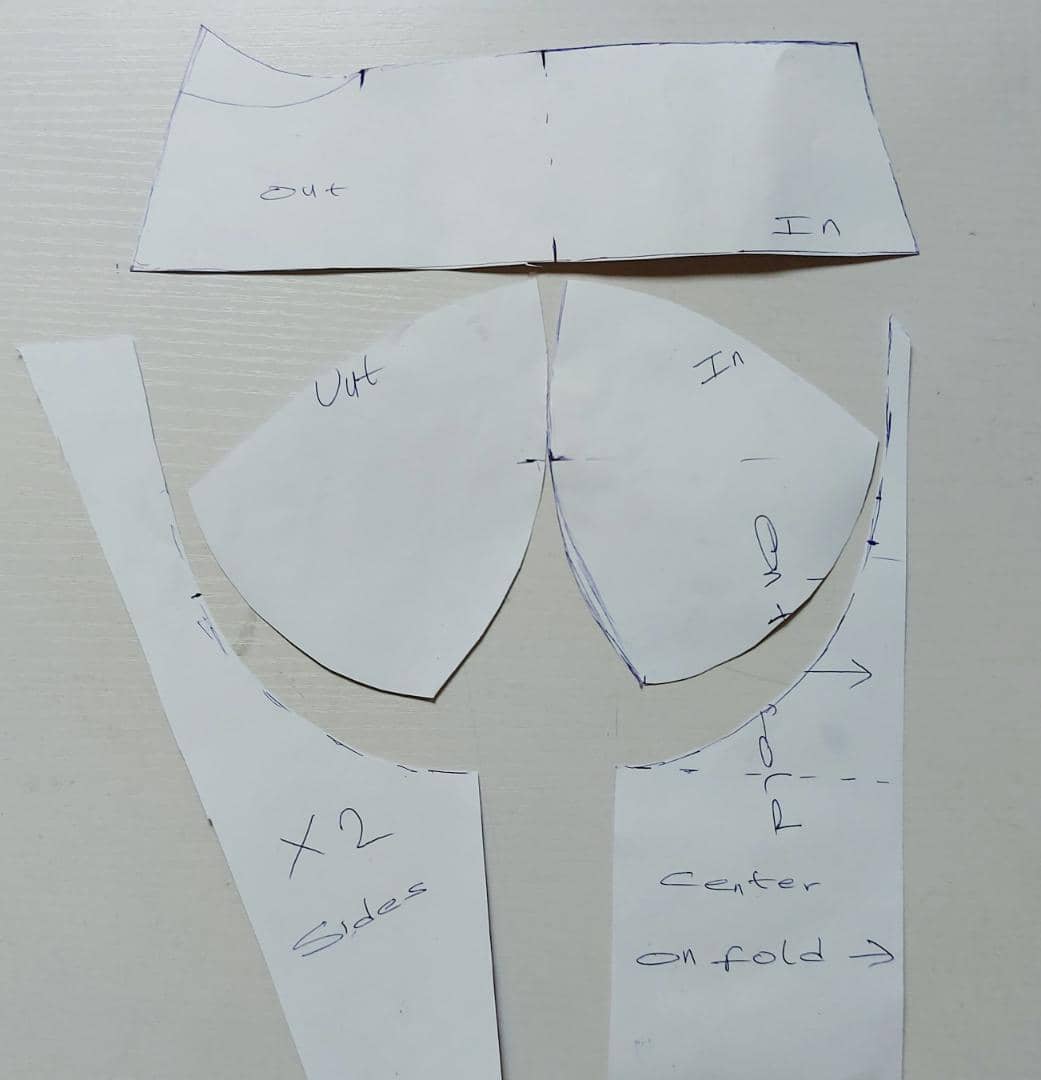 Out
In
Out
In
X2
Sides
Center
on fold →